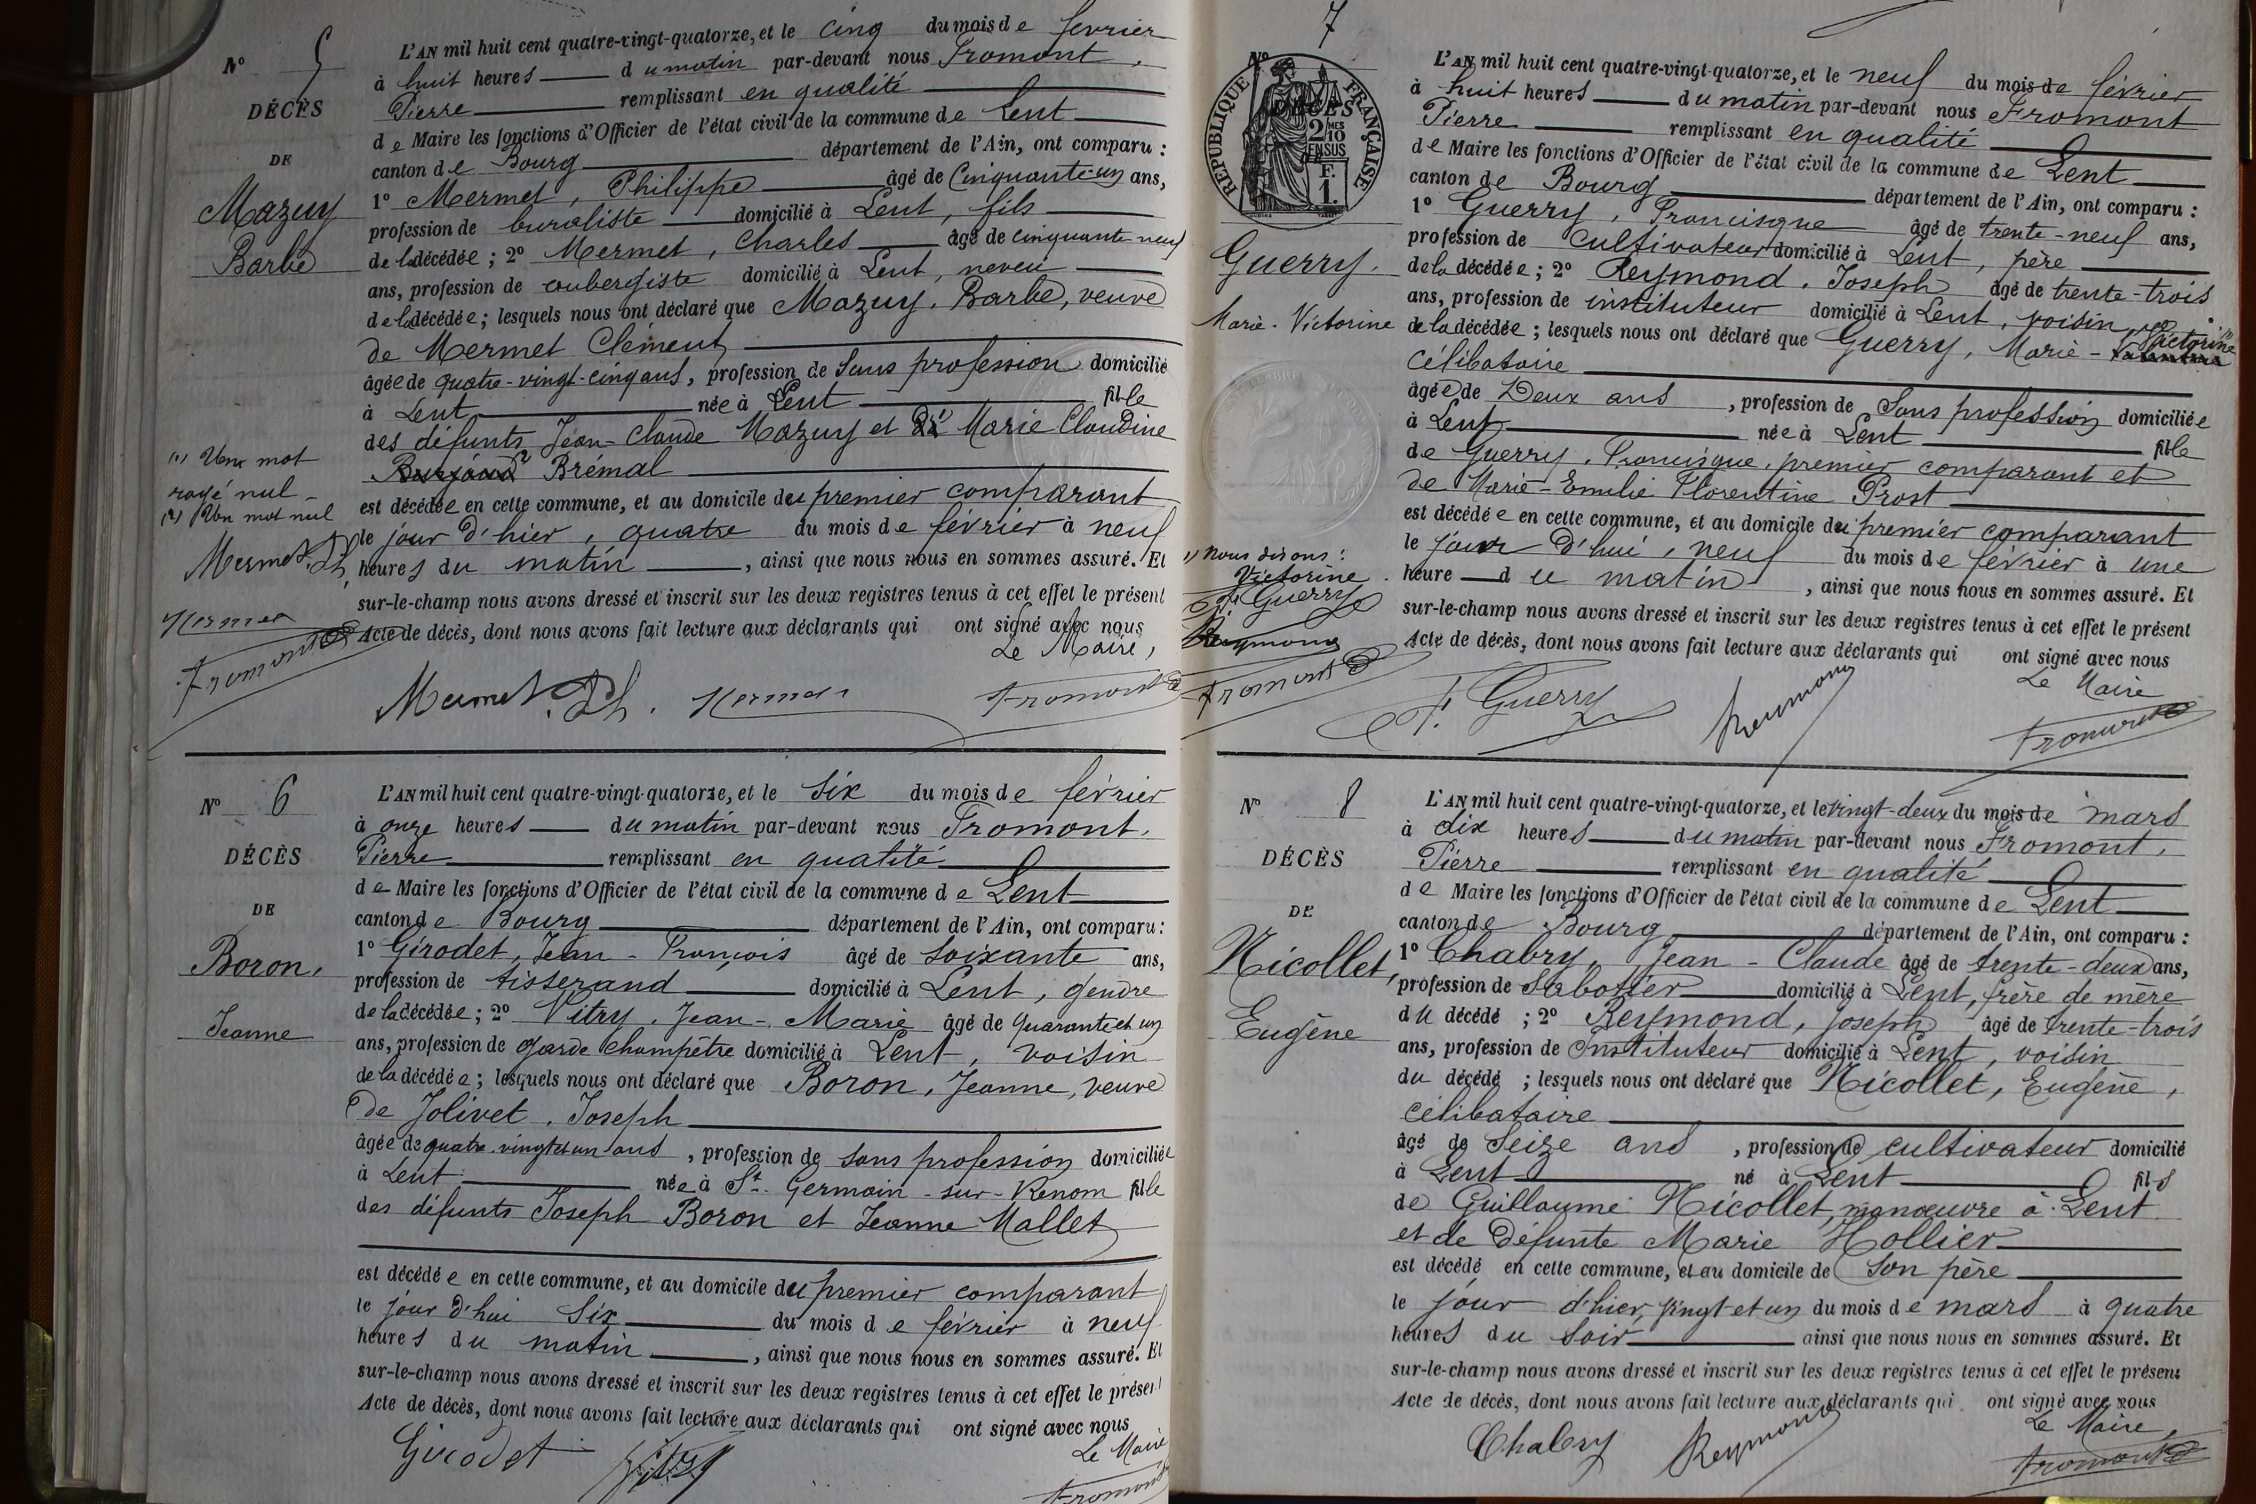 Nº 5
DÉCÈS
DE
Mazuy
Barbe
L'AN mil huit cent quatre-vingt-quatorze, et le cinq du mois de février
à huit heures du matin par-devant nous Fromont,
Pierre remplissant en qualité
de Maire les fonctions d'Officier de l'état civil de la commune de Lent
canton de Bourg département de l'Ain, ont comparu :
1º Mermet, Philippe âgé de cinquante-un ans,
profession de buraliste domicilié à Lent, fils
de la décédée ; 2º Mermet, Charles âgé de cinquante-neuf
ans, profession de aubergiste domicilié à Lent, neveu
de la décédée ; lesquels nous ont déclaré que Mazuy, Barbe, veuve
de Mermet Clément
âgée de quatre-vingt-cinq ans, profession de sans profession domicilié
à Lent née à Lent fille
des défunts Jean-Claude Mazuy et de Marie Claudine
Brémal
est décédée en cette commune, et au domicile du premier comparant
le jour d'hier, quatre du mois de février à neuf
heures du matin, ainsi que nous nous en sommes assuré. Et
sur-le-champ nous avons dressé et inscrit sur les deux registres tenus à cet effet le présent
Acte de décès, dont nous avons fait lecture aux déclarants qui ont signé avec nous
Le Maire,
(1) Un mot
rayé nul
(2) Un mot nul
Mermet Ph
Mermet
Fromont
Mermet. Ph. Mermet Fromont
Nº 6
DÉCÈS
DE
Boron,
Jeanne
L'AN mil huit cent quatre-vingt-quatorze, et le six du mois de février
à onze heures du matin par-devant nous Fromont,
Pierre remplissant en qualité
de Maire les fonctions d'Officier de l'état civil de la commune de Lent
canton de Bourg département de l'Ain, ont comparu :
1º Girodet, Jean-François âgé de soixante ans,
profession de tisserand domicilié à Lent, gendre
de la décédée ; 2º Vitry, Jean-Marie âgé de quarante et un
ans, profession de garde champêtre domicilié à Lent, voisin
de la décédée ; lesquels nous ont déclaré que Boron, Jeanne, veuve
de Jolivet, Joseph
âgée de quatre-vingt et un ans, profession de sans profession domiciliée
à Lent née à St. Germain-sur-Renom fille
des défunts Joseph Boron et Jeanne Mallet
est décédée en cette commune, et au domicile du premier comparant
le jour d'hui six du mois de février à neuf
heures du matin, ainsi que nous nous en sommes assuré. Et
sur-le-champ nous avons dressé et inscrit sur les deux registres tenus à cet effet le présent
Acte de décès, dont nous avons fait lecture aux déclarants qui ont signé avec nous
Le Maire
Girodet Vitry Fromont
7
Nº
RÉPUBLIQUE FRANÇAISE
DÉCÈS
2/10 EN SUS
F. 1.
Guerry.
Marie-Victorine
L'AN mil huit cent quatre-vingt-quatorze, et le neuf du mois de février
à huit heures du matin par-devant nous Fromont
Pierre remplissant en qualité
de Maire les fonctions d'Officier de l'état civil de la commune de Lent
canton de Bourg département de l'Ain, ont comparu :
1º Guerry, Francisque âgé de trente-neuf ans,
profession de cultivateur domicilié à Lent, père
de la décédée ; 2º Reymond, Joseph âgé de trente-trois
ans, profession de instituteur domicilié à Lent, voisin
de la décédée ; lesquels nous ont déclaré que Guerry, Marie-Victorine
célibataire
âgée de Deux ans, profession de sans profession domiciliée
à Lent née à Lent fille
de Guerry, Francisque, premier comparant et
de Marie-Emilie Florentine Prost
est décédée en cette commune, et au domicile du premier comparant
le jour d'hui, neuf du mois de février à une
heure du matin, ainsi que nous nous en sommes assuré. Et
sur-le-champ nous avons dressé et inscrit sur les deux registres tenus à cet effet le présent
Acte de décès, dont nous avons fait lecture aux déclarants qui ont signé avec nous
Le Maire
1) Nous disons :
Victorine
F. Guerry
Reymond
Fromont
F. Guerry Reymond Fromont
Nº 8
DÉCÈS
DE
Nicollet,
Eugène
L'AN mil huit cent quatre-vingt-quatorze, et le vingt-deux du mois de mars
à dix heures du matin par-devant nous Fromont,
Pierre remplissant en qualité
de Maire les fonctions d'Officier de l'état civil de la commune de Lent
canton de Bourg département de l'Ain, ont comparu :
1º Chabry, Jean-Claude âgé de trente-deux ans,
profession de sabotier domicilié à Lent, frère de mère
du décédé ; 2º Reymond, Joseph âgé de trente-trois
ans, profession de instituteur domicilié à Lent, voisin
du décédé ; lesquels nous ont déclaré que Nicollet, Eugène,
célibataire
âgé de seize ans, profession de cultivateur domicilié
à Lent né à Lent fils
de Guillaume Nicollet, manœuvre à Lent
et de défunte Marie Hollier
est décédé en cette commune, et au domicile de son père
le jour d'hier, vingt et un du mois de mars à quatre
heures du soir ainsi que nous nous en sommes assuré. Et
sur-le-champ nous avons dressé et inscrit sur les deux registres tenus à cet effet le présent
Acte de décès, dont nous avons fait lecture aux déclarants qui ont signé avec nous
Le Maire,
Chabry Reymond Fromont